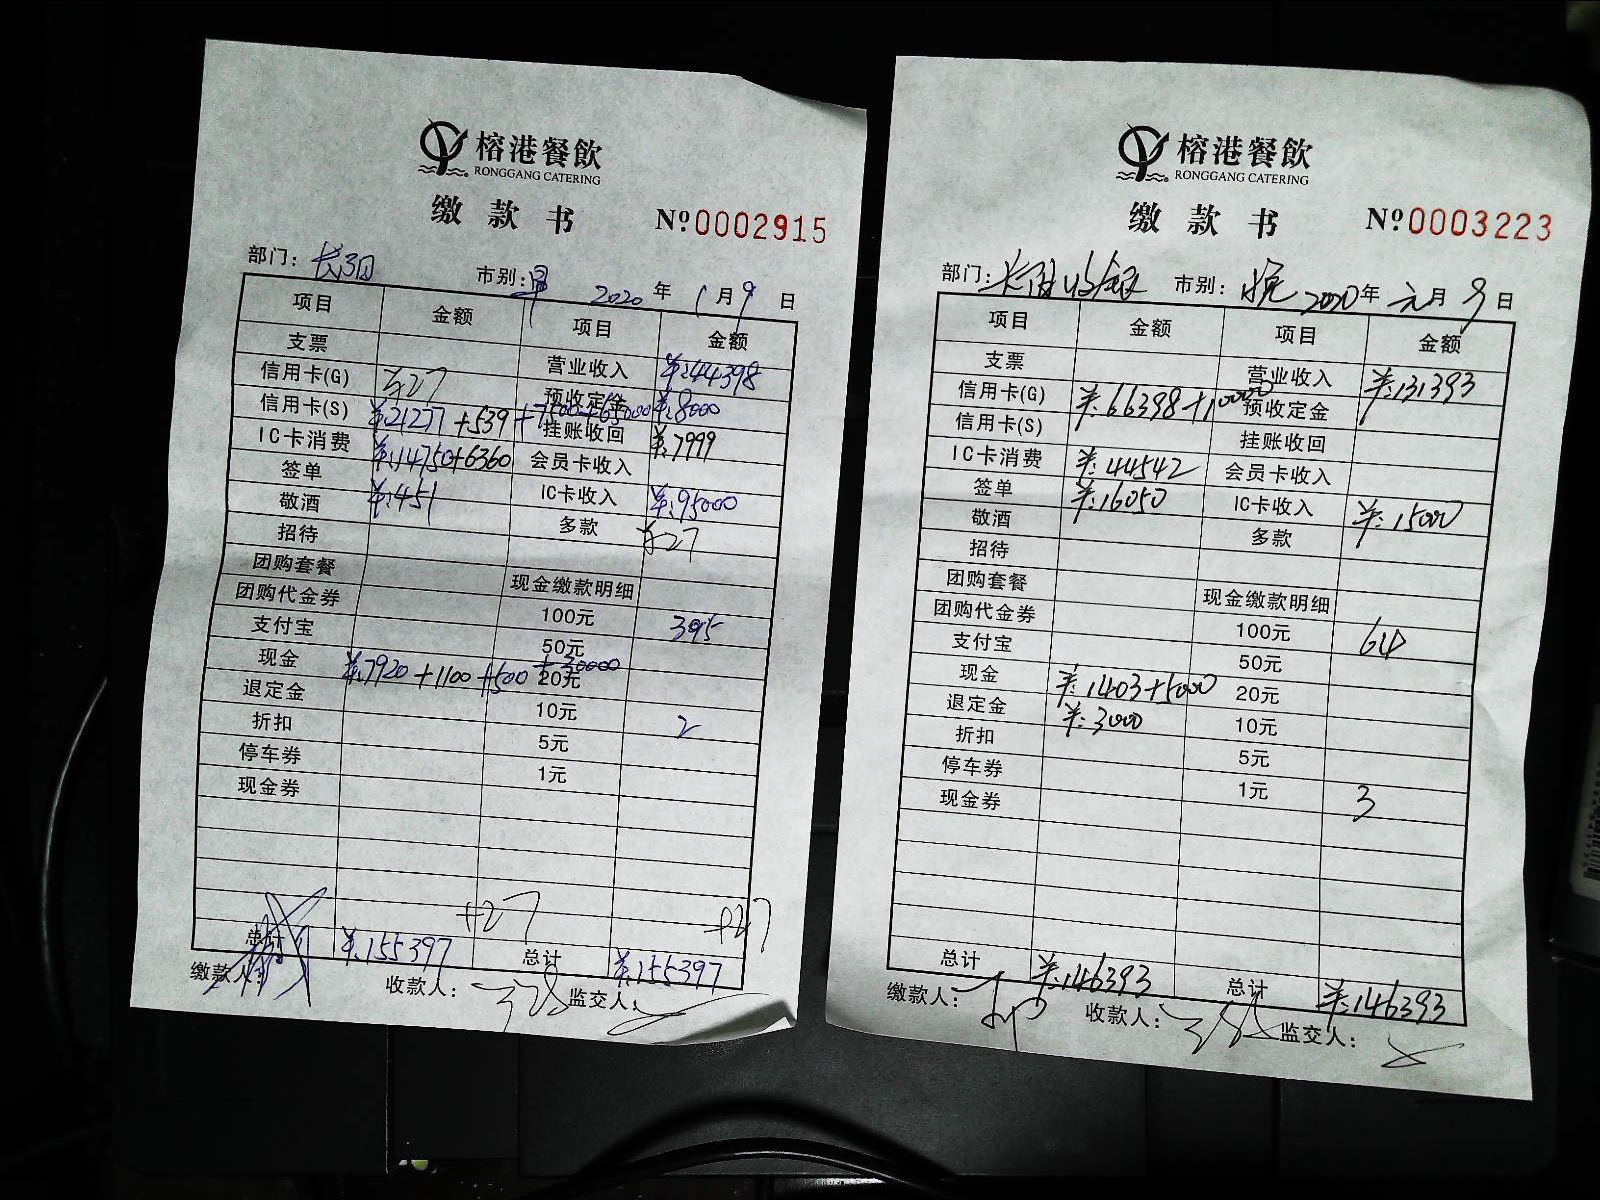 榕港餐飲
RONGGANG CATERING
缴款书 №0002915
部门： 市别：早 2020年1月9日
项目 金额 项目 金额
支票 营业收入 ¥:44398
信用卡(G) ¥27 预收定金 ¥:8000
信用卡(S) ¥:21277+539+7500+65000 挂账收回 ¥:7999
IC卡消费 ¥:14750+6360 会员卡收入
签单 ¥:451 IC卡收入 ¥:95000
敬酒 多款 ¥27
招待
团购套餐 现金缴款明细
团购代金券 100元 395
支付宝 50元
现金 ¥:7920+1100+500+30000 20元
退定金 10元 2
折扣 5元
停车券 1元
现金券
+27 +27
总计 ¥:155397 总计 ¥:155397
缴款人： 收款人： 监交人：
榕港餐飲
RONGGANG CATERING
缴款书 №0003223
部门： 市别：晚 2020年元月9日
项目 金额 项目 金额
支票 营业收入 ¥:131393
信用卡(G) ¥:66398+10000 预收定金
信用卡(S) 挂账收回
IC卡消费 ¥:44542 会员卡收入
签单 ¥:16050 IC卡收入 ¥:15000
敬酒 多款
招待
团购套餐 现金缴款明细
团购代金券 100元 64
支付宝 50元
现金 ¥:1403+5000 20元
退定金 ¥:3000 10元
折扣 5元
停车券 1元 3
现金券
总计 ¥:146393 总计 ¥:146393
缴款人： 收款人： 监交人：